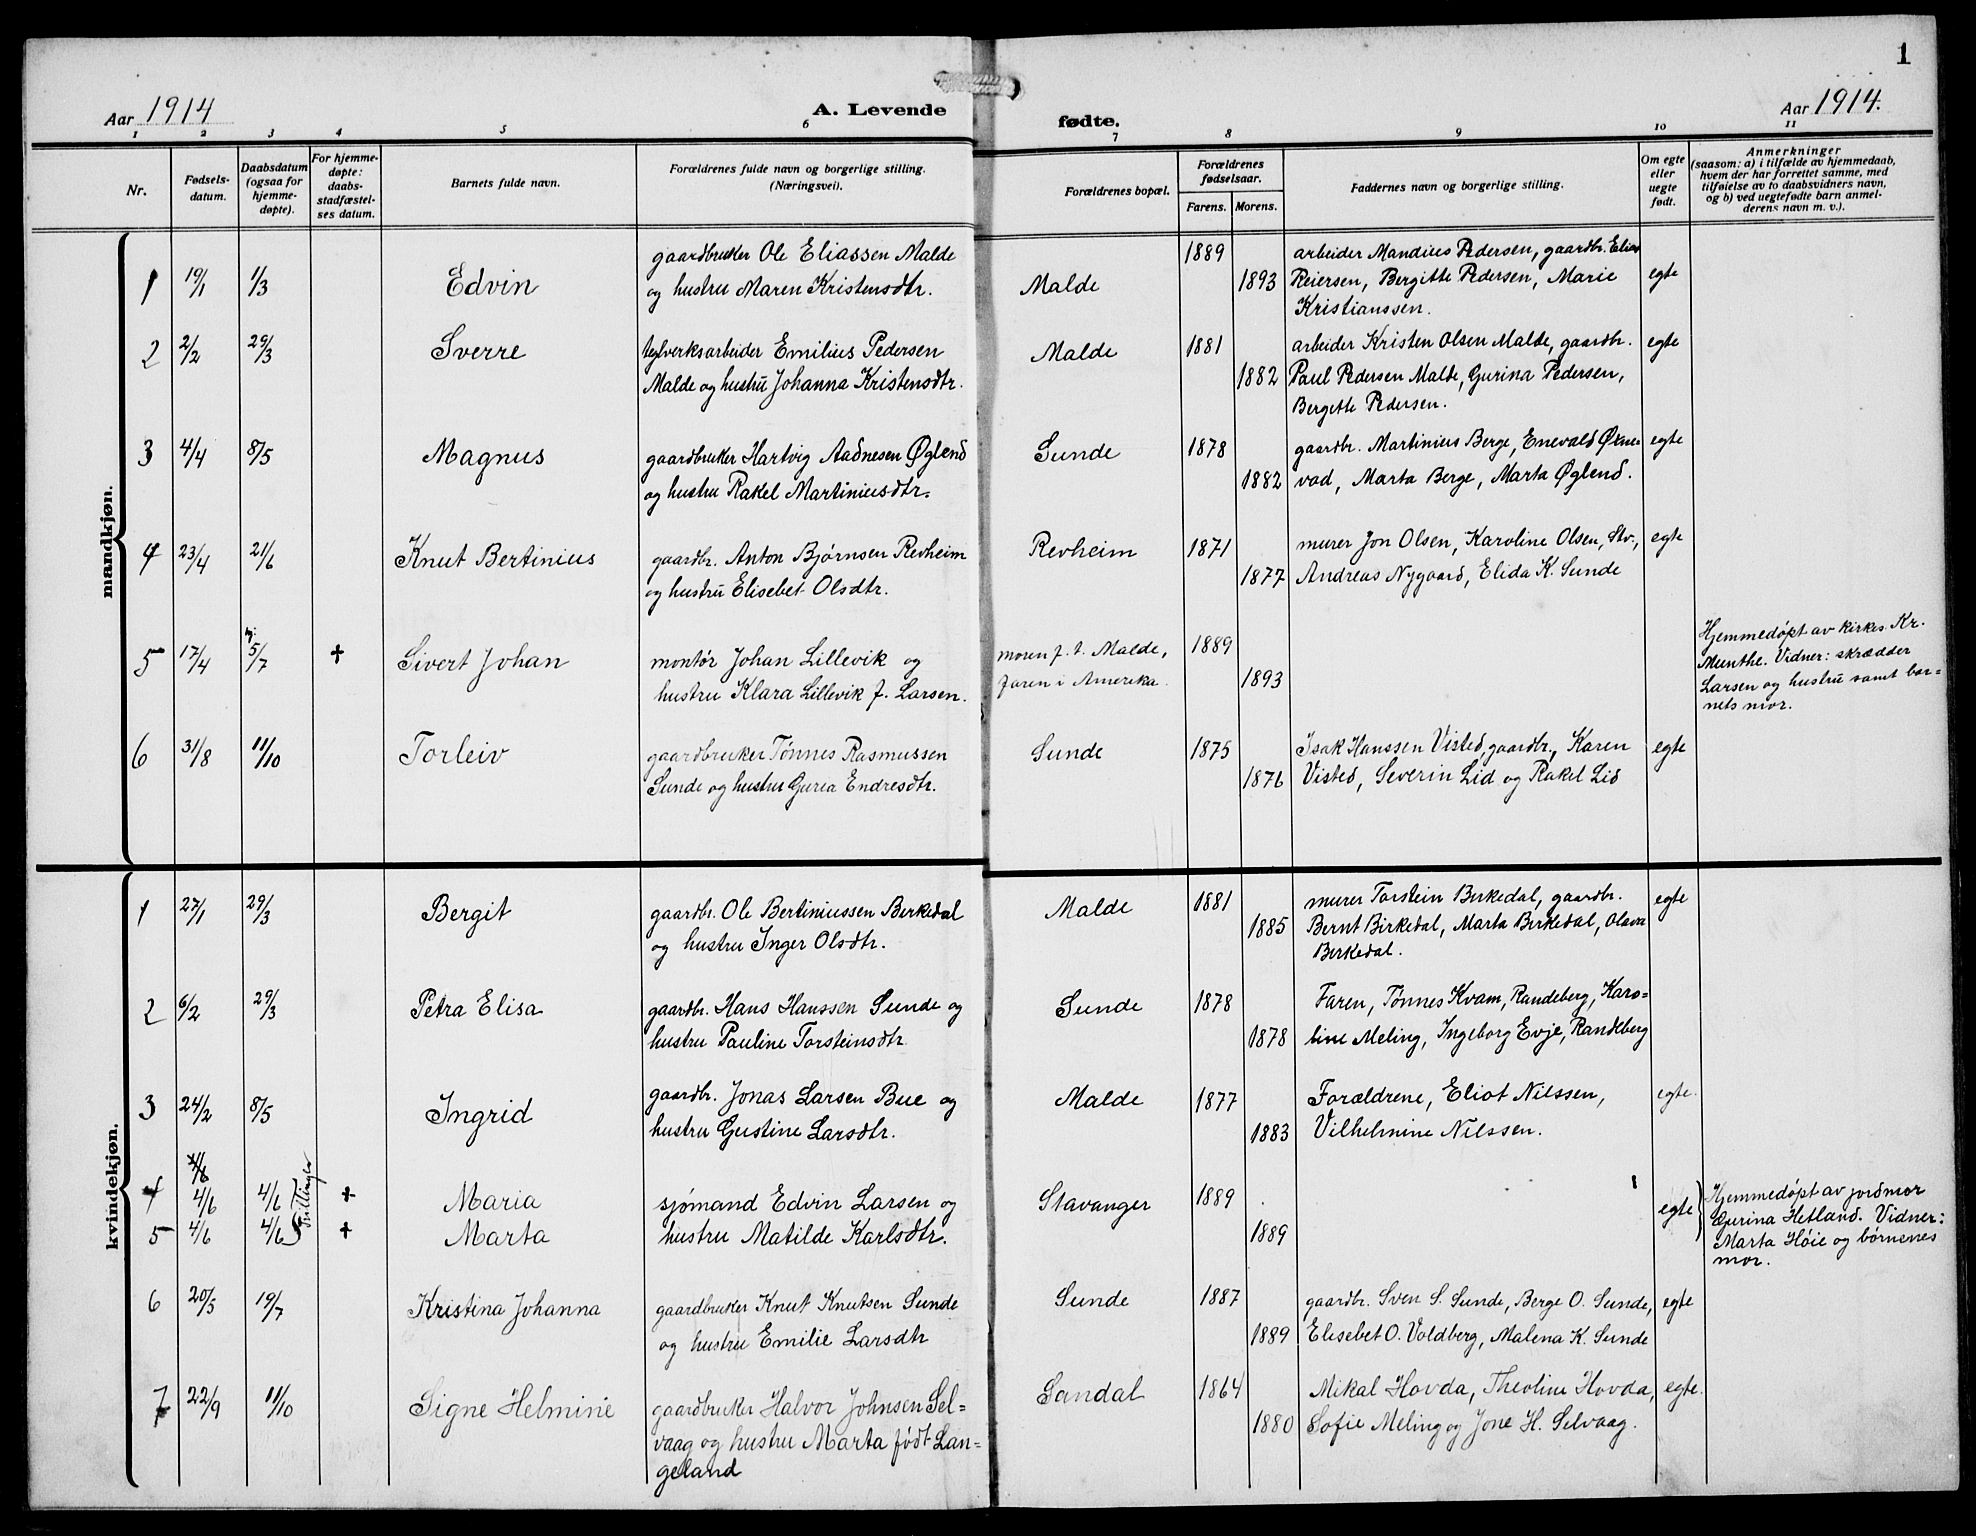 1
Aar 1914
A. Levende fødte.
Aar 1914.
1 2 3 4 5 6 7 8 9 10 11
Nr.
Fødsels-
datum.
Daabsdatum
(ogsaa for
hjemme-
døpte).
For hjemme-
døpte:
daabs-
stadfæstel-
ses datum.
Barnets fulde navn.
Forældrenes fulde navn og borgerlige stilling.
(Næringsvei).
Forældrenes bopæl.
Forældrenes
fødselsaar.
Farens. Morens.
Faddernes navn og borgerlige stilling.
Om egte
eller
uegte
født.
Anmerkninger
(saasom: a) i tilfælde av hjemmedaab,
hvem der har forrettet samme, med
tilføielse av to daabsvidners navn,
og b) ved uegtefødte barn anmel-
derens navn m. v.).
mandkjøn.
1 19/1 1/3 Edvin
gaardbruker Ole Eliassen Malde
og hustru Maren Kristensdtr.
Malde 1889 1893
arbeider Mandius Pedersen, gaardbr. Elias
Reiersen, Bergitte Pedersen, Marie
Kristianssen.
egte
2 2/2 29/3 Sverre
teglverksarbeider Emilius Pedersen
Malde og hustru Johanna Kristensdtr.
Malde 1881 1882
arbeider Kristen Olsen Malde, gaardbr.
Paul Pedersen Malde, Gurina Pedersen,
Bergitte Pedersen.
egte
3 4/4 8/5 Magnus
gaardbruker Hartvig Aadnesen Øglend
og hustru Rakel Martiniusdtr.
Sunde 1878 1882
gaardbr. Martinius Berge, Enevald Øxne-
vad, Marta Berge, Marta Øglend.
egte
4 23/4 21/6 Knut Bertinius
gaardbr. Anton Bjørnsen Revheim
og hustru Elisebet Olsdtr.
Revheim 1871 1877
murer Jon Olsen, Karoline Olsen, Stv.,
Andreas Nygaard, Elida K. Sunde
egte
5 17/4 hj. 5/7 + Sivert Johan
montør Johan Lillevik og
hustru Klara Lillevik f. Larsen.
moren f. t. Malde,
faren i Amerika.
1889 1893
Hjemmedøpt av kirkes. Kr.
Munthe. Vidner: skrædder
Larsen og hustru samt bar=
nets mor.
6 31/8 11/10 Torleiv
gaardbruker Tønnes Rasmussen
Sunde og hustru Guria Endresdtr.
Sunde 1875 1876
Isak Hanssen Visted, gaardbr., Karen
Visted, Severin Lid og Rakel Lid
egte
kvindekjøn.
1 27/1 29/3 Bergit
gaardbr. Ole Bertiniussen Birkedal
og hustru Inger Olsdtr.
Malde 1881 1885
murer Torstein Birkedal, gaardbr.
Bernt Birkedal, Marta Birkedal, Olava
Birkedal.
egte
2 6/2 29/3 Petra Elisa
gaardbr. Hans Hanssen Sunde og
hustru Pauline Torsteinsdtr.
Sunde 1878 1878
Faren, Tønnes Kvam, Randeberg, Karo=
line Meling, Ingeborg Evje, Randeberg
3 24/2 8/5 Ingrid
gaardbr. Jonas Larsen Bue og
hustru Gustine Larsdtr.
Malde 1877 1883
Forældrene, Eliot Nilssen,
Vilhelmine Nilssen.
egte.
4 4/6 4/6 Tvillinger + Maria
5 4/6 4/6 + Marta
sjømand Edvin Larsen og
hustru Matilde Karlsdtr.
Stavanger 1889 1889
egte
Hjemmedøpt av jordmor
Gurina Hetland. Vidner:
Marta Høie og børnenes
mor.
6 20/5 19/7 Kristina Johanna
gaardbruker Knut Knutsen Sunde
og hustru Emilie Larsdtr
Sunde 1887 1889
gaardbr. Sven S. Sunde, Berge O. Sunde,
Elisebet O. Voldberg, Malena K. Sunde
egte
7 22/9 11/10 Signe Helmine
gaardbruker Halvor Johnsen Sel=
vaag og hustru Marta født Lan=
geland
Sandal 1864 1880
Mikal Hovda, Theoline Hovda,
Sofie Meling og Jone H. Selvaag.
egte.